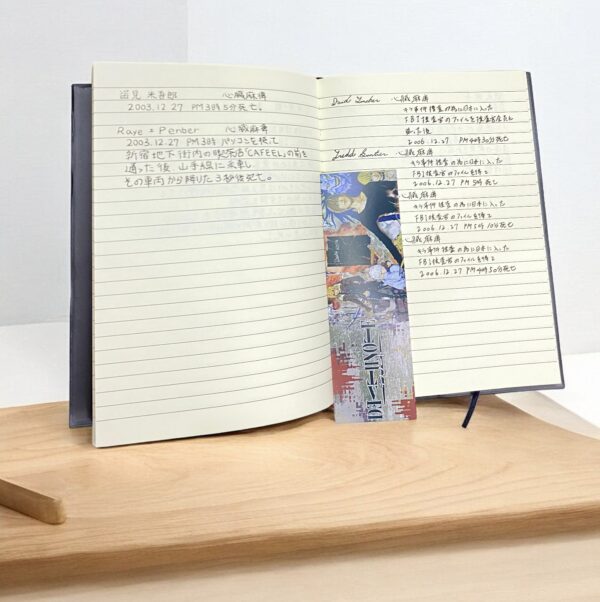 2003.12.27 PM3時5分死亡。
Raye = Penber 心臓麻痺
2003.12.27 PM3時 パソコンを使って
新宿地下街内の喫茶店「CAFEEL」の前を
通った後 山手線に乗車し
その車両から降りた3秒後死亡。
心臓麻痺
キラ事件捜査の為に日本に入った
FBI捜査官のファイルを
2006.12.27 PM4時30分死亡
心臓麻痺
キラ事件捜査の為に日本に入った
FBI捜査官のファイルを得て
2006.12.27 PM5時死亡
心臓麻痺
キラ事件捜査の為に日本に入った
FBI捜査官のファイルを得て
2006.12.27 PM5時10分死亡
心臓麻痺
キラ事件捜査の為に日本に入った
FBI捜査官のファイルを得て
2006.12.27 PM4時50分死亡
DEATH NOTE